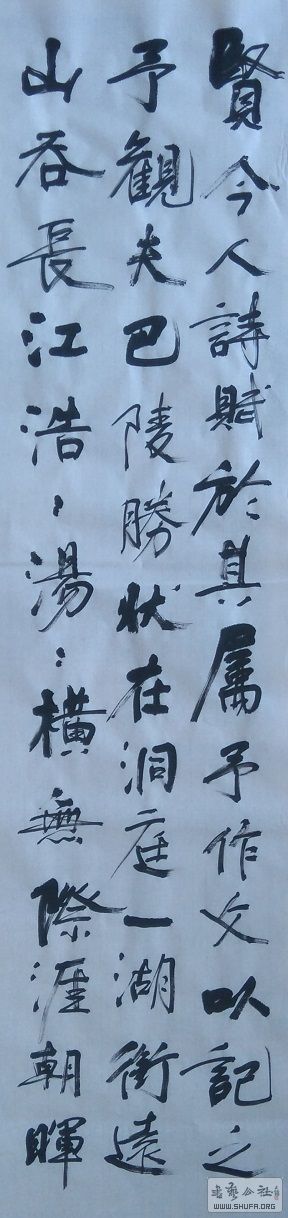 賢今人詩賦於其屬予作文以記之
予觀夫巴陵勝狀在洞庭一湖銜遠
山吞長江浩〻湯〻橫無際涯朝暉
書藝公社
WWW.SHUFA.ORG